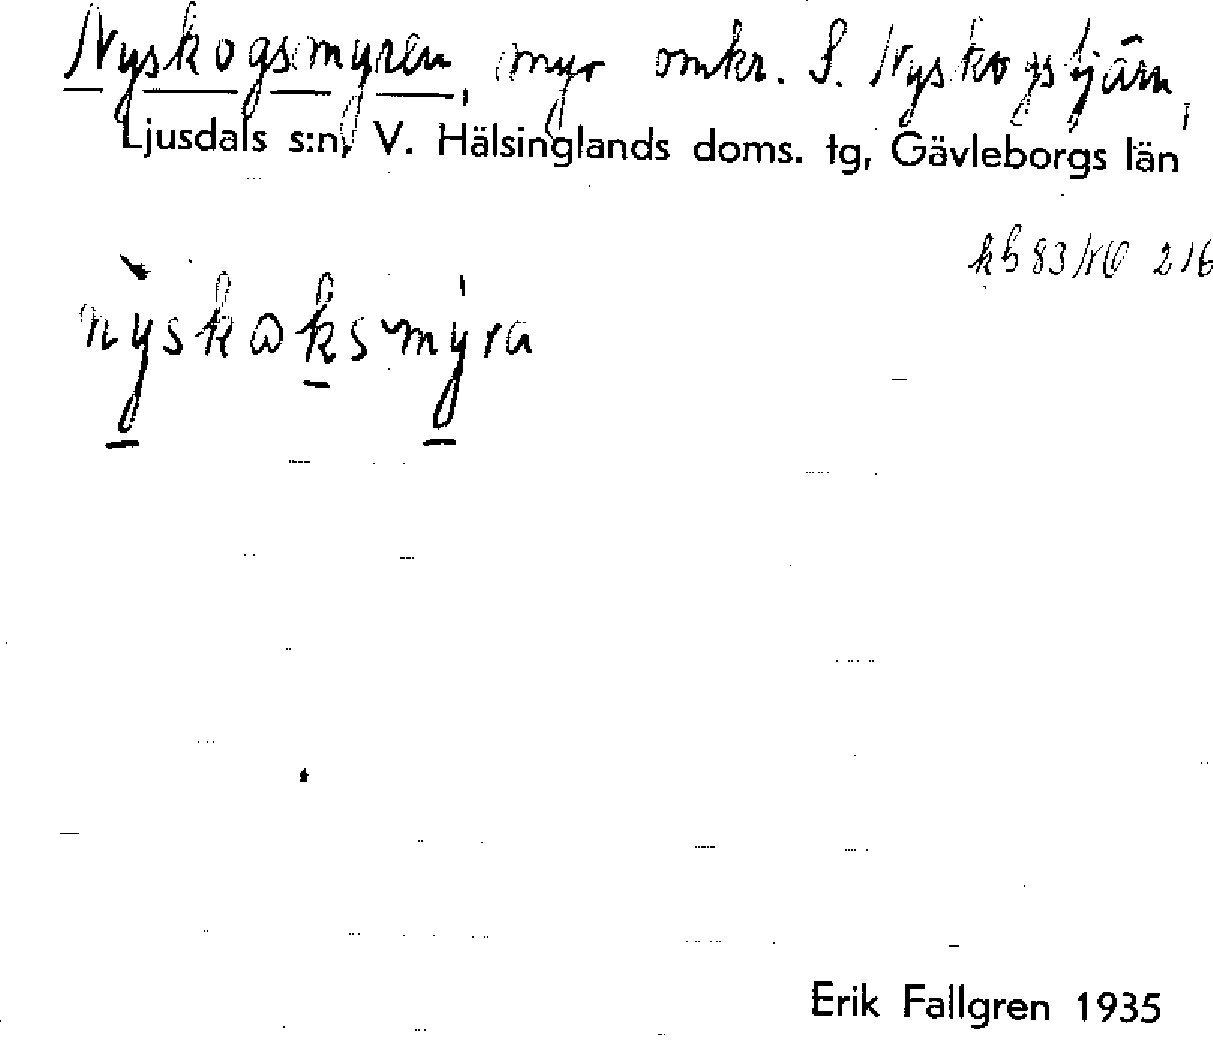 Nyskogsmyren, myr omkr. S. Nyskogstjärn,
Ljusdals s:n, V. Hälsinglands doms. tg, Gävleborgs län
kb 83 NO 216
nỳskaksmýra
Erik Fallgren 1935